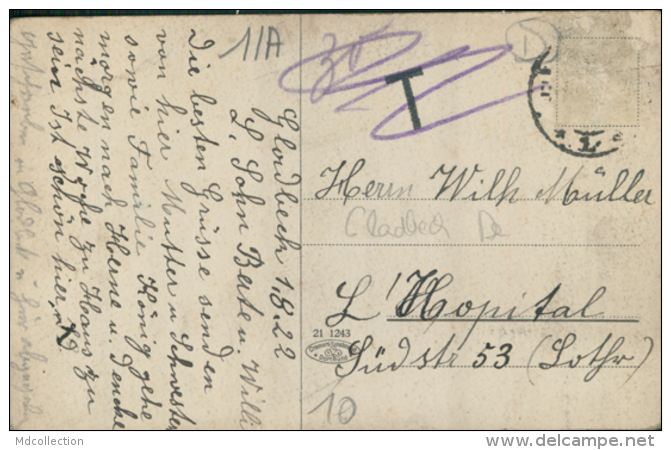 11A
Gladbech 1.8.22
L. Sohn Berte u. Willi
Die besten Grüsse senden
von hier Mutter u Schwester
sowie Familie König gehe
morgen nach Herne u. denke
nächste Woche zu Haus zu
sein Ist schön hier
T
D
Herrn Wilh Müller
Gladbeck De
L'Hopital
Südstr 53 (Lothr)
21 1243
10
Mdcollection
http://www.delcampe.net